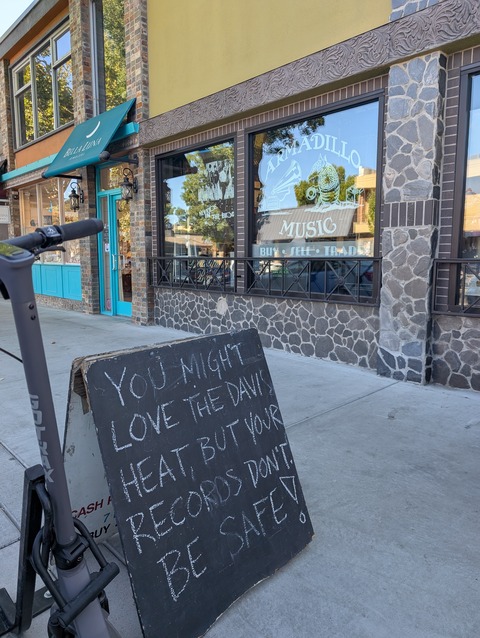 BELLA LUNA
ARMADILLO
MUSIC
BUY · SELL · TRADE
YOU MIGHT
LOVE THE DAVIS
HEAT, BUT YOUR
RECORDS DON'T.
BE SAFE!
CASH
BUY